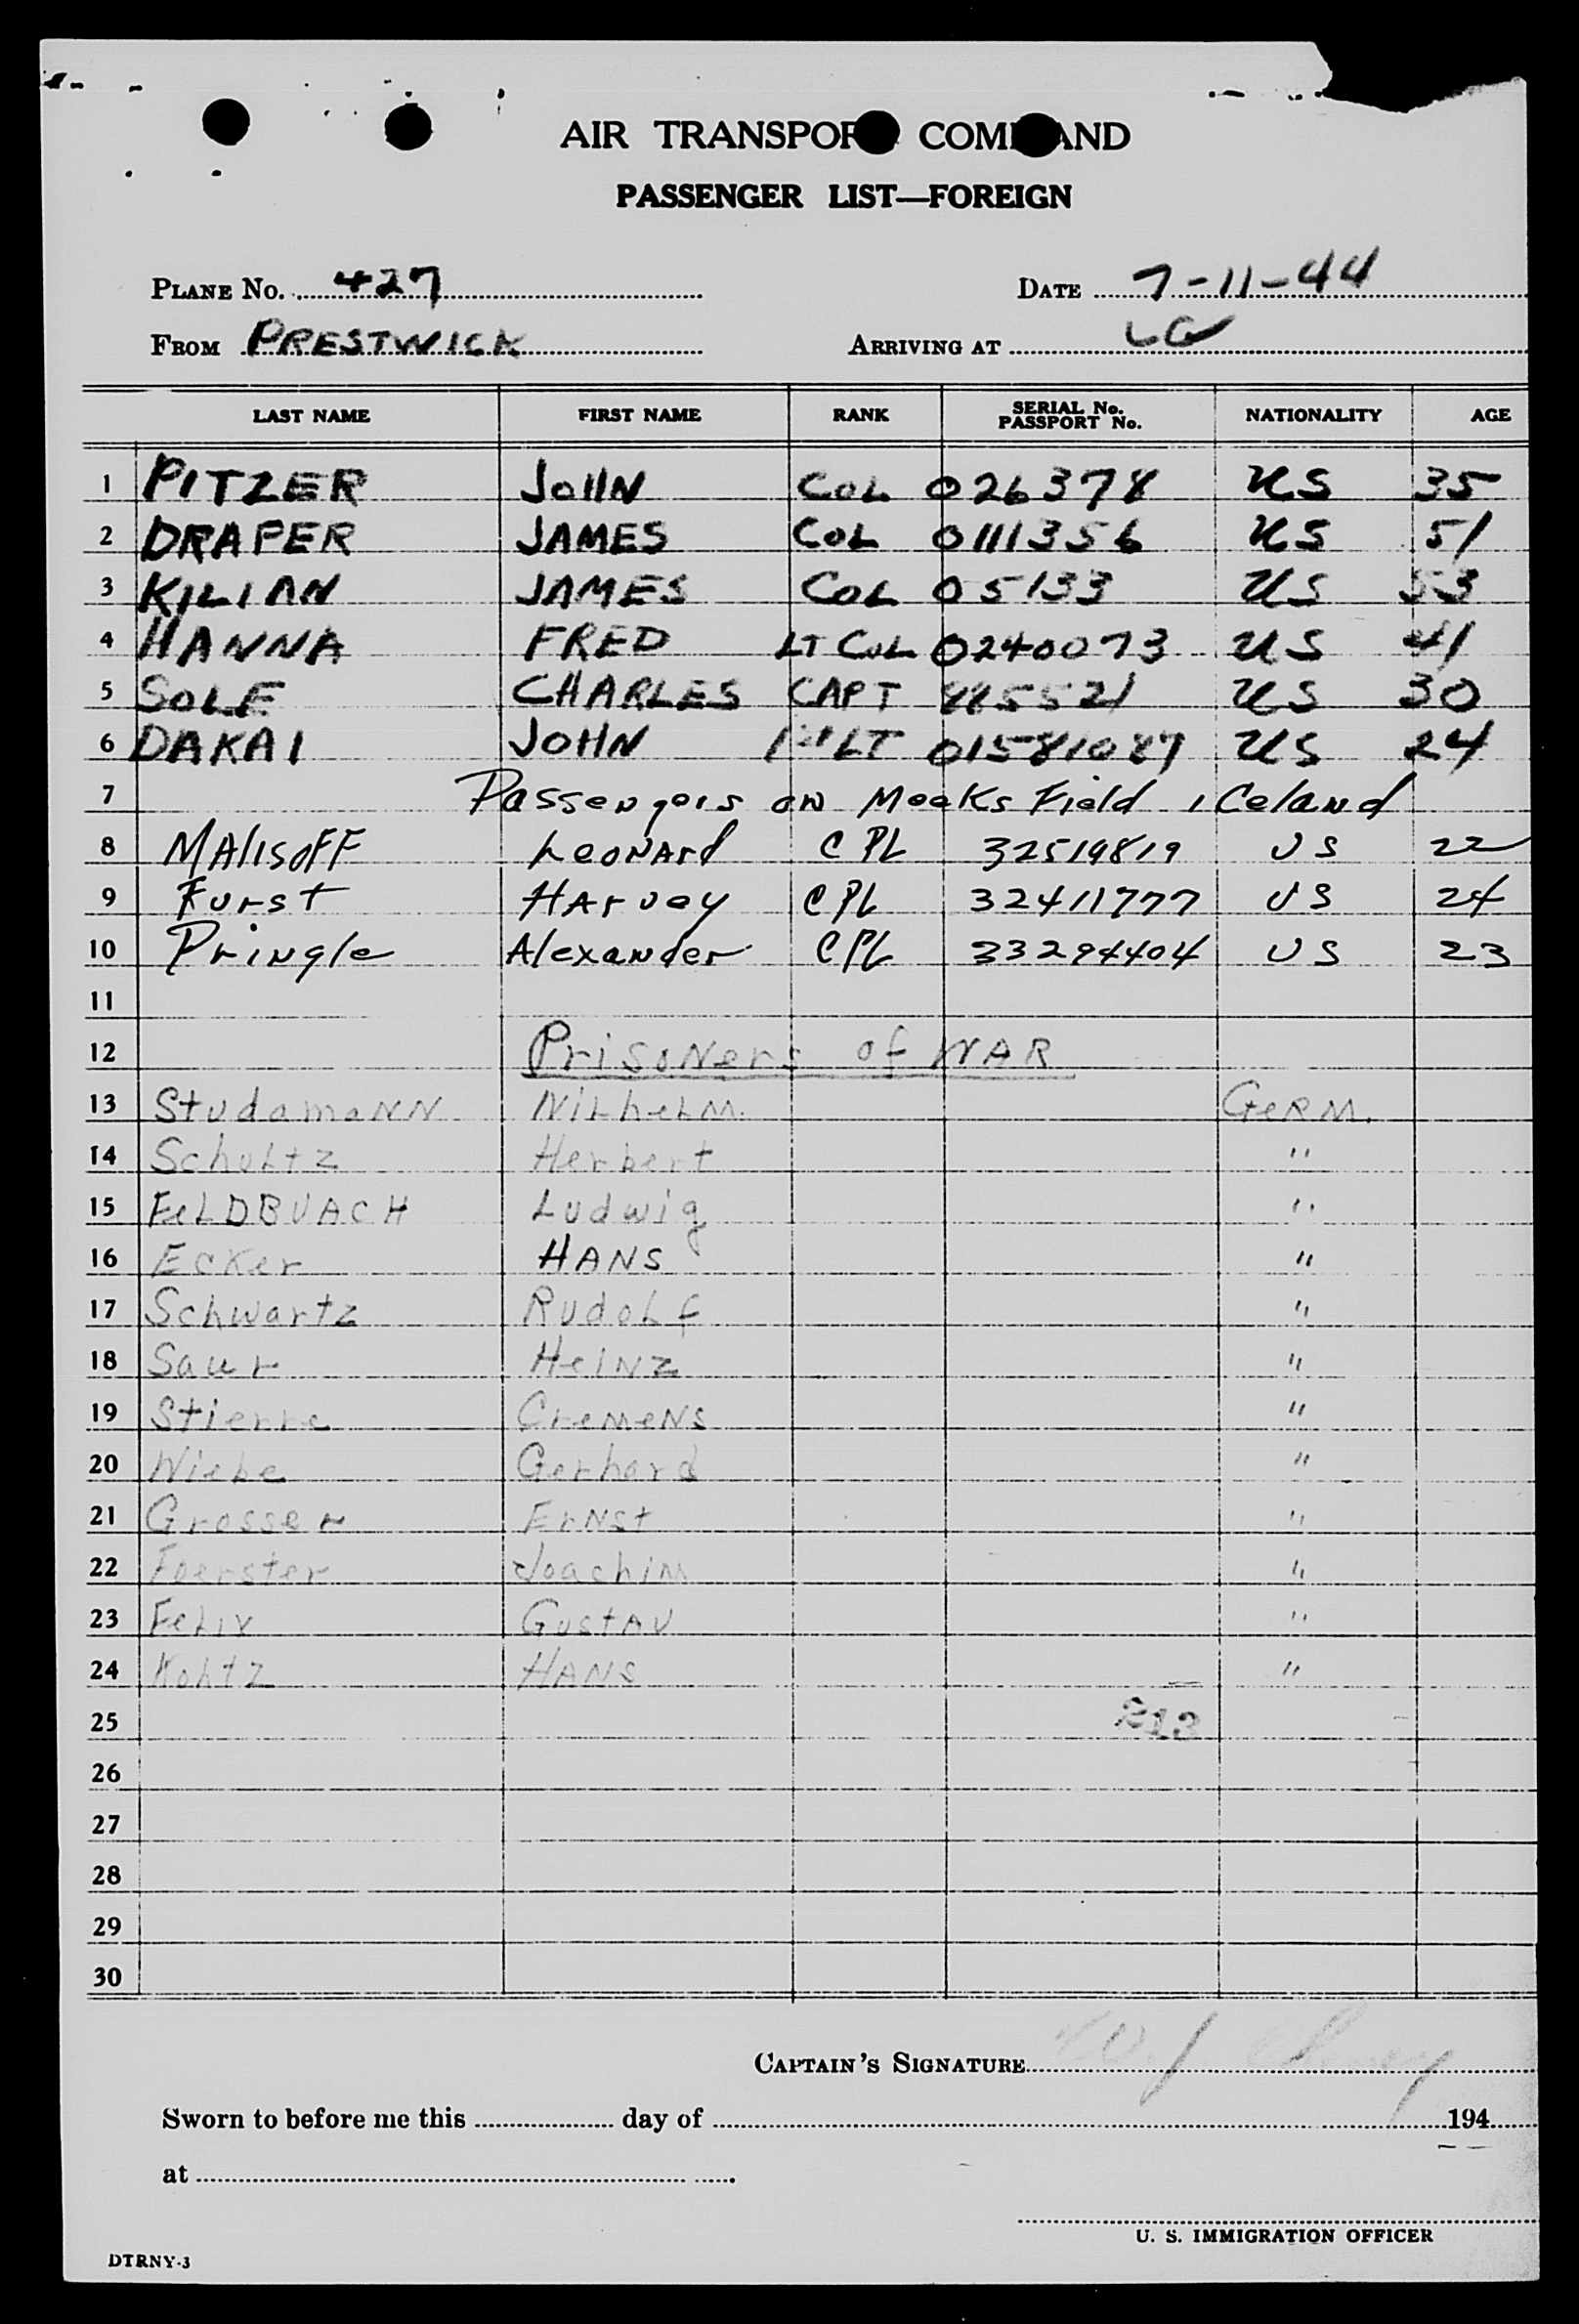 AIR TRANSPORT COMMAND
PASSENGER LIST—FOREIGN
PLANE No. 427 DATE 7-11-44
FROM PRESTWICK ARRIVING AT LG
LAST NAME FIRST NAME RANK SERIAL No. PASSPORT No. NATIONALITY AGE
1 PITZER JOHN COL 026378 US 35
2 DRAPER JAMES COL 0111356 US 51
3 KILIAN JAMES COL 05133 US 53
4 HANNA FRED LT COL 0240073 US 41
5 SOLE CHARLES CAPT 885521 US 30
6 DAKAI JOHN LT 01581087 US 24
7 Passengers on Meeks Field, Iceland
8 MAlisoFF Leonard CPL 32519819 US 22
9 Furst Harvey CPL 32411777 US 24
10 Pringle Alexander CPL 33294404 US 23
11
12 Prisoners of WAR
13 StudemaNN WiLheLM. GeRM.
14 SchuLtz Herbert "
15 FeLDBUACH Ludwig "
16 Ecker HANS "
17 Schwartz RudoLf "
18 Saur HeINz "
19 CLemeNs "
20 Wiebe Gerhard "
21 Grosser ErNst "
22 Foerster Joachim "
23 FeLix GustAV "
24 KohLtz HANS "
25 213
26
27
28
29
30
CAPTAIN'S SIGNATURE
Sworn to before me this day of 194
at
U. S. IMMIGRATION OFFICER
DTRNY-3